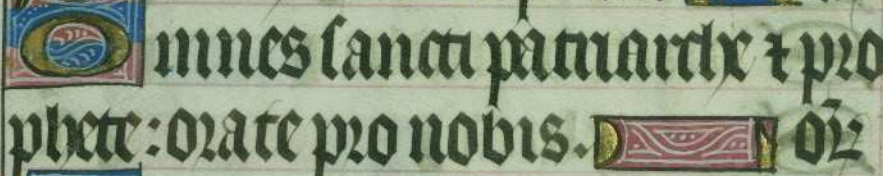 Omnes sancti patriarche ⁊ pro
phete: orate pro nobis. or̄